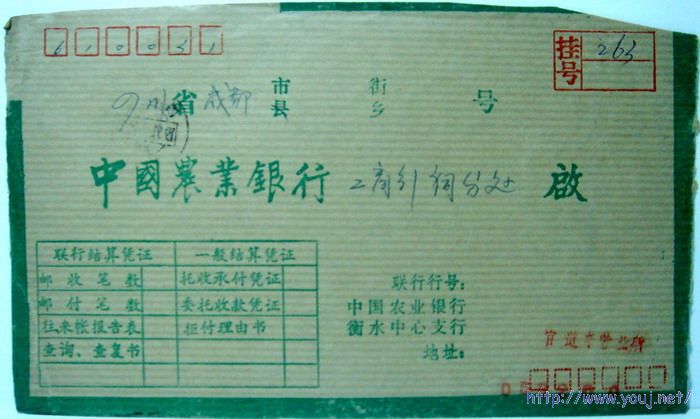 610031
挂号 263
四川省成都市县 街乡 号
中國農業銀行 工商 分处 啟
联行结算凭证 一般结算凭证
邮收笔数 托收承付凭证
邮付笔数 委托收款凭证
往来帐报告表 拒付理由书
查询、查复书
联行行号:
中国农业银行
衡水中心支行
地址:
官道李营业所
http://www.youj.net/